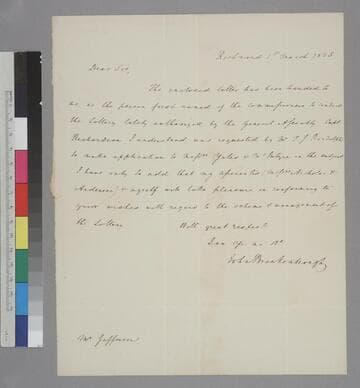 Richmond 1st March 1826
Dear Sir,
The enclosed letter has been handed to
me as the person first named of the commissioners to
the Lottery lately authorized by the General Assembly Capt
Richardson I understand was requested by Mr T. J. Randolph
to make application to Messrs Yates & McIntyre on the subject
I have only to add that my associates (Messrs Nicholas &
Anderson) & myself will take pleasure in conforming to
your wishes with regard to the scheme & management of
the Lottery
With great respect
John Brockenbrough
Mr Jefferson